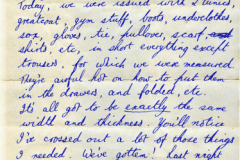 Today, we were issued with 2 tunics,
greatcoat, gym stuff, boots, underclothes,
sox, gloves, tie, pullover, scarf,
shirts, etc, in short everything except
trousers, for which we were measured.
They're awful hot on how to put them
in the drawers, and folded, etc.
It's all got to be exactly the same
width and thickness. You'll notice
I've crossed out a lot of those things
I needed. We've gotten! Last night